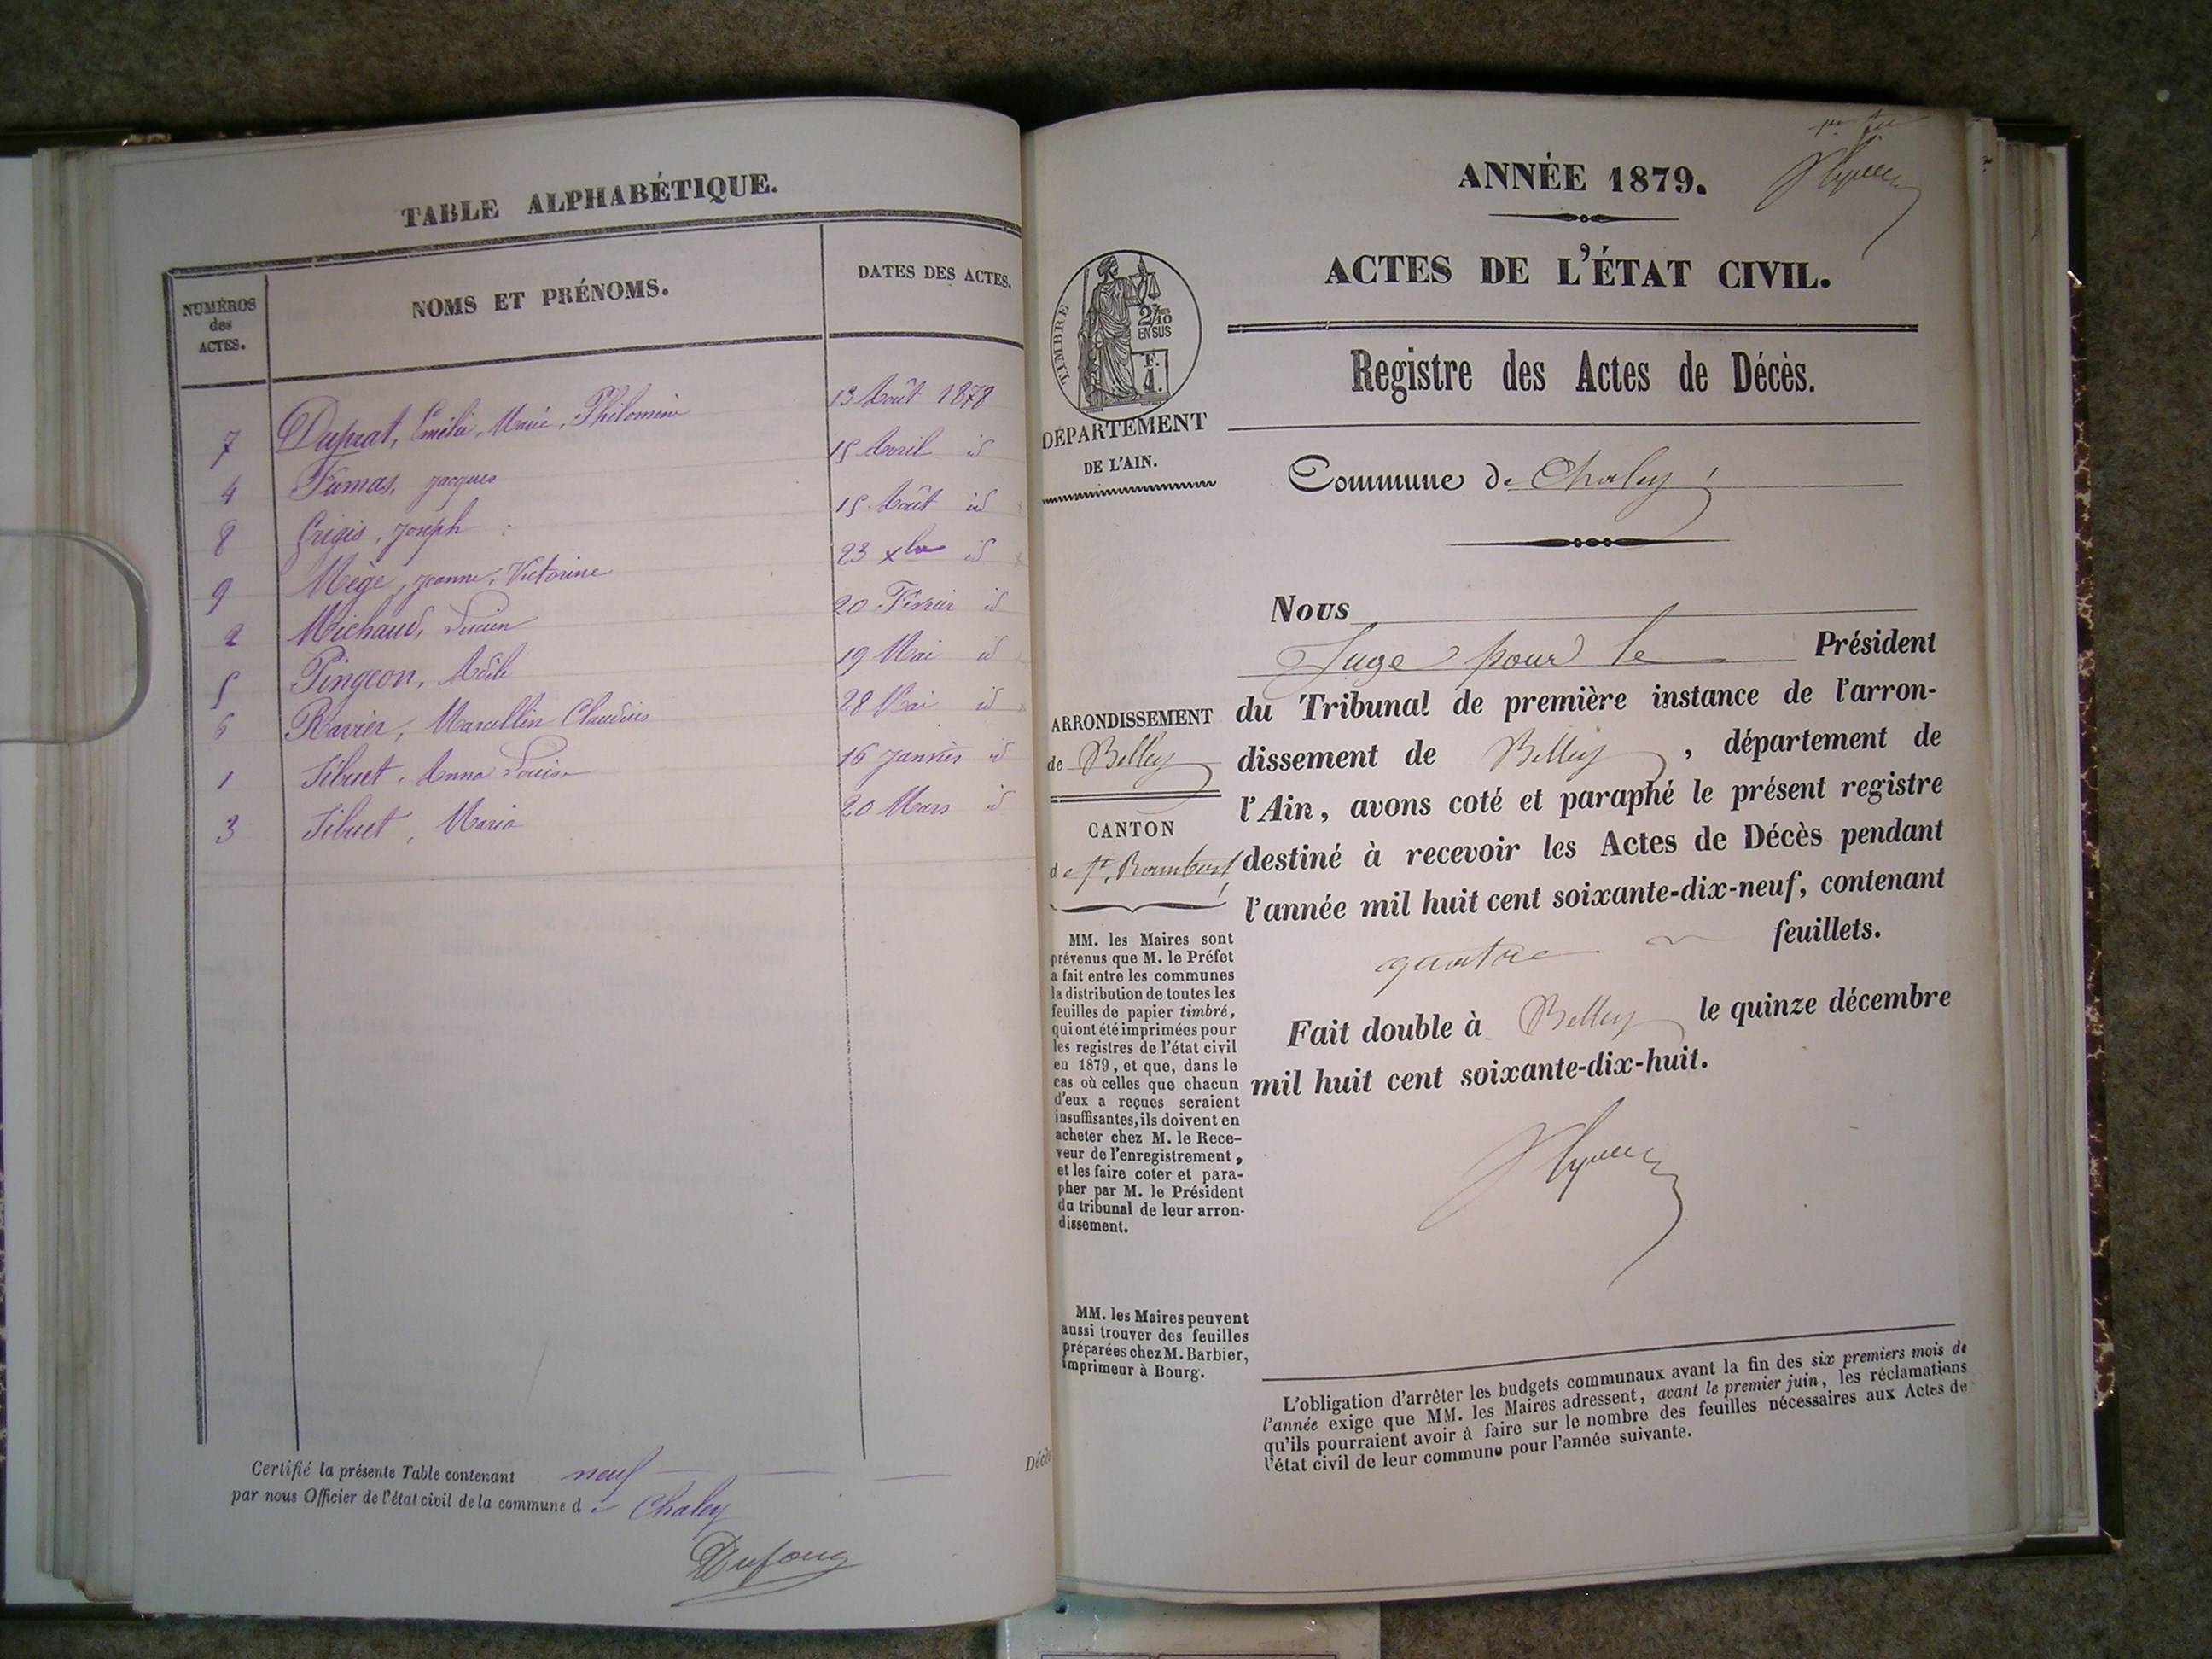 TABLE ALPHABÉTIQUE.
NUMÉROS des ACTES. NOMS ET PRÉNOMS. DATES DES ACTES.
7 Duprat, Emélie, Marie, Philomène 13 Août 1878
4 Fumas, Jacques 15 Avril id
8 Grigis, Joseph 15 Août id
9 Mège, Jeanne, Victorine 23 xbre id
2 Michaud, Lucien 20 Février id
5 Pingeon, Adèle 19 Mai id
6 Ravier, Marcellin Claudius 28 Mai id
1 Sibuet, Anna Louise 16 Janvier id
3 Sibuet, Maria 20 Mars id
Certifié la présente Table contenant neuf
par nous Officier de l'état civil de la commune de Chaley
Dufour
Décès
ANNÉE 1879.
ACTES DE L'ÉTAT CIVIL.
TIMBRE
2/10
EN SUS
F.
1.
DÉPARTEMENT
DE L'AIN.
Registre des Actes de Décès.
Commune de Chaley
ARRONDISSEMENT
de Belley
CANTON
de St. Rambert
MM. les Maires sont
prévenus que M. le Préfet
a fait entre les communes
la distribution de toutes les
feuilles de papier timbré,
qui ont été imprimées pour
les registres de l'état civil
en 1879, et que, dans le
cas où celles que chacun
d'eux a reçues seraient
insuffisantes, ils doivent en
acheter chez M. le Rece-
veur de l'enregistrement,
et les faire coter et para-
pher par M. le Président
du tribunal de leur arron-
dissement.
MM. les Maires peuvent
aussi trouver des feuilles
préparées chez M. Barbier,
imprimeur à Bourg.
Nous
Juge pour le Président
du Tribunal de première instance de l'arron-
dissement de Belley, département de
l'Ain, avons coté et paraphé le présent registre
destiné à recevoir les Actes de Décès pendant
l'année mil huit cent soixante-dix-neuf, contenant
quatre feuillets.
Fait double à Belley le quinze décembre
mil huit cent soixante-dix-huit.
L'obligation d'arrêter les budgets communaux avant la fin des six premiers mois de
l'année exige que MM. les Maires adressent, avant le premier juin, les réclamations
qu'ils pourraient avoir à faire sur le nombre des feuilles nécessaires aux Actes de
l'état civil de leur commune pour l'année suivante.